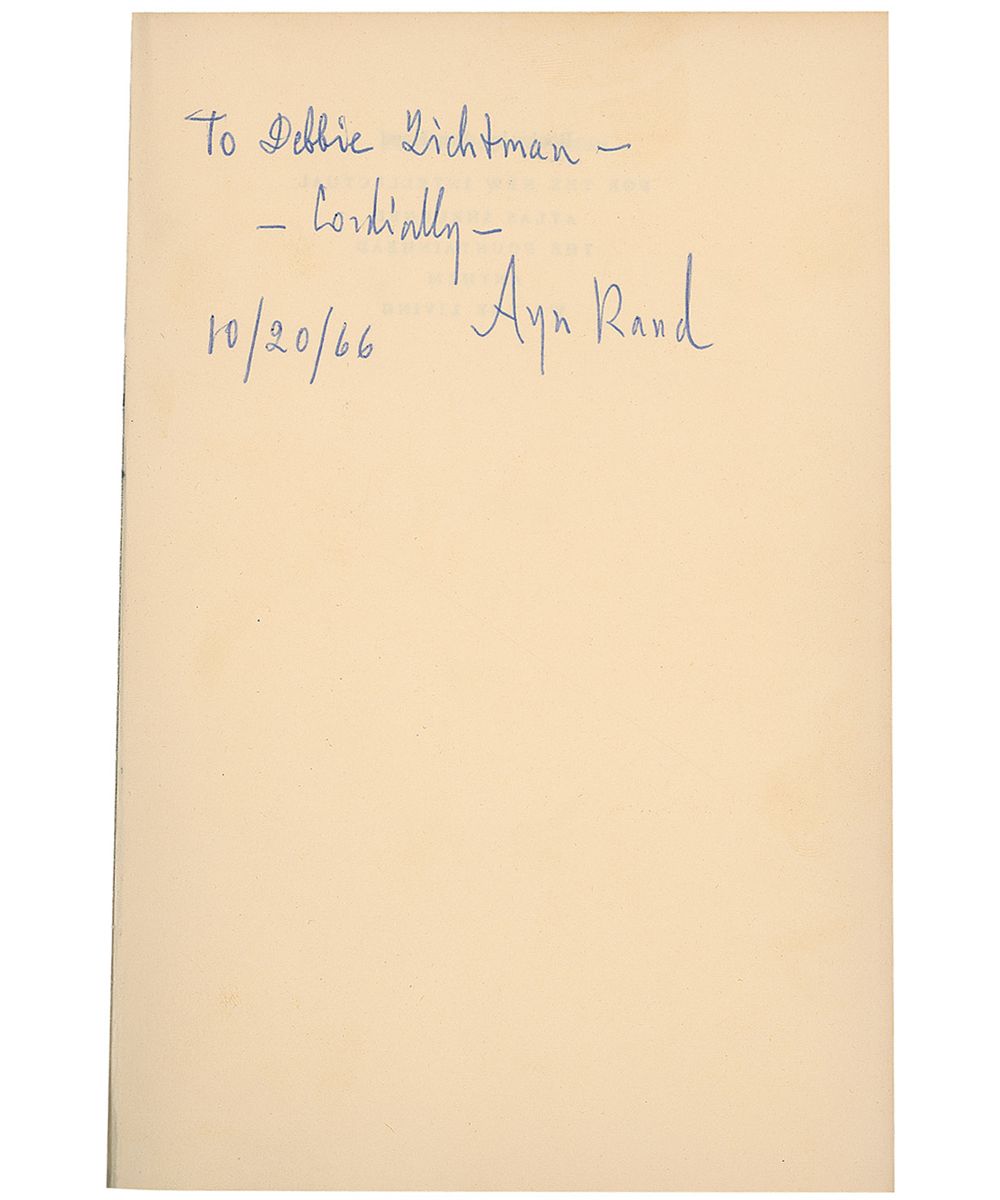 To Debbie Lichtman –
– Cordially –
Ayn Rand
10/20/66